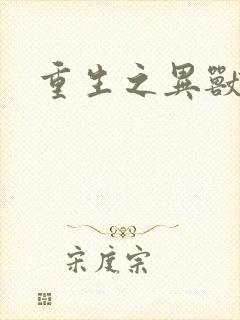 重生之異獸
宋度宗